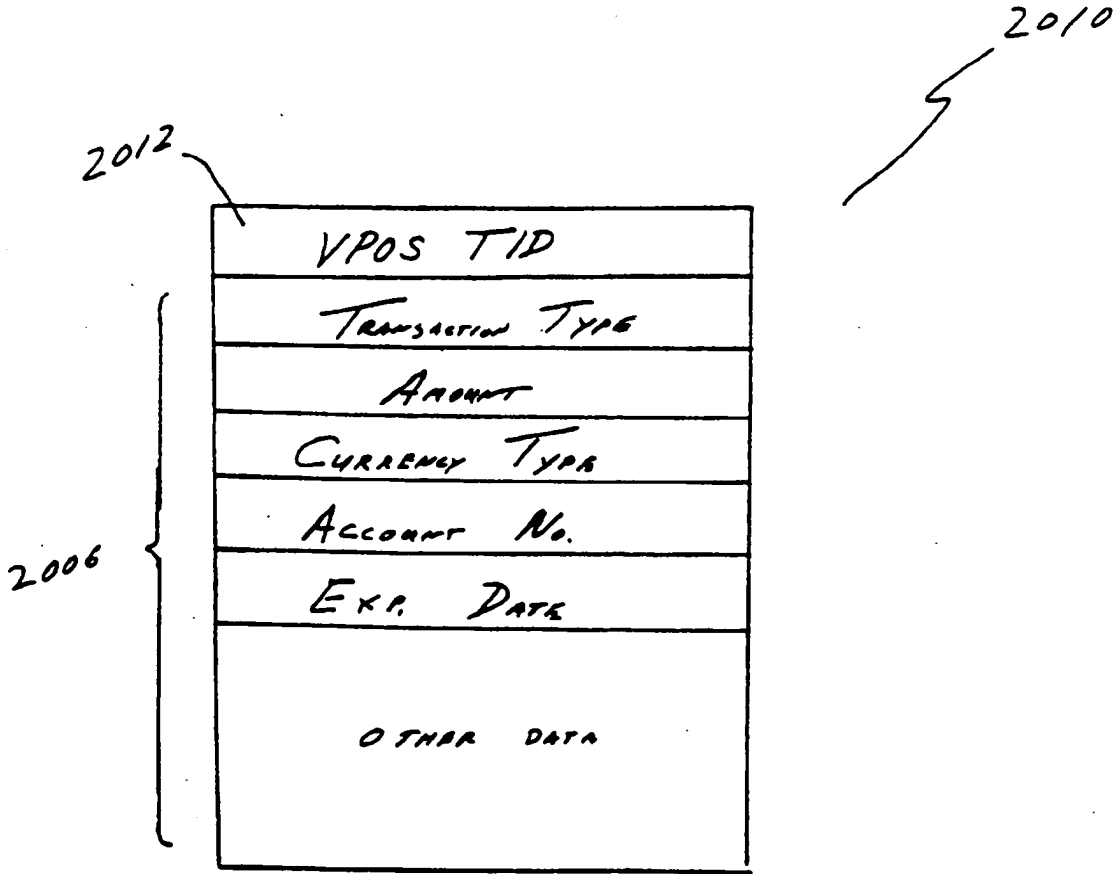 2010
2012
VPOS TID
TRANSACTION TYPE
AMOUNT
CURRENCY TYPE
ACCOUNT NO.
EXP. DATE
2006
OTHER DATA